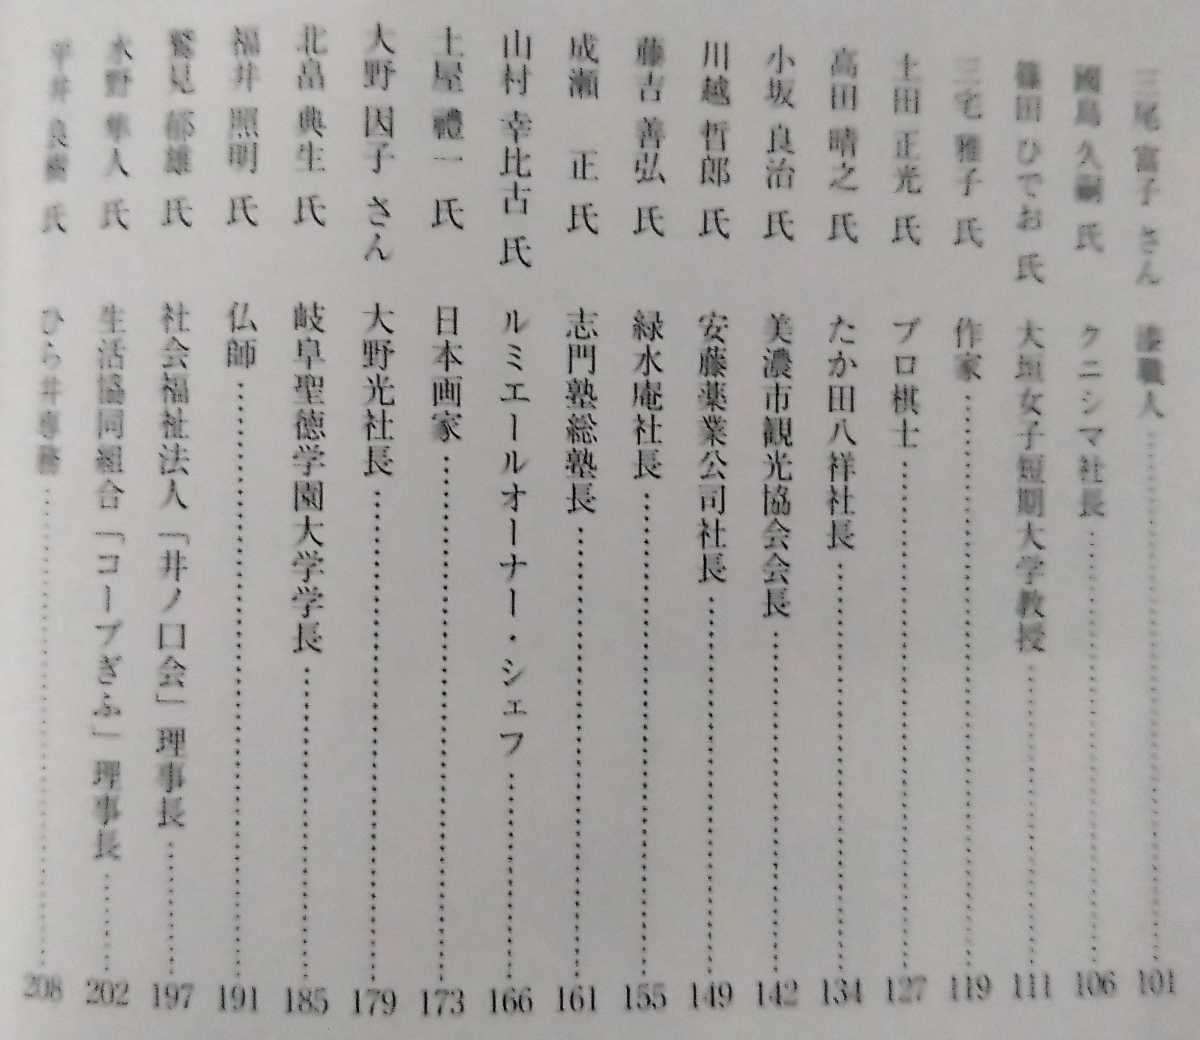 三尾 富子 さん 漆職人 101
國島 久嗣 氏 クニシマ社長 106
篠田 ひでお 氏 大垣女子短期大学教授 111
三宅 雅子 氏 作家 119
土田 正光 氏 プロ棋士 127
高田 晴之 氏 たか田八祥社長 134
小坂 良治 氏 美濃市観光協会会長 142
川越 哲郎 氏 安藤薬業公司社長 149
藤吉 善弘 氏 緑水庵社長 155
成瀬 正 氏 志門塾総塾長 161
山村 幸比古 氏 ルミエールオーナー・シェフ 166
土屋 禮一 氏 日本画家 173
大野 因子 さん 大野光社長 179
北畠 典生 氏 岐阜聖徳学園大学学長 185
福井 照明 氏 仏師 191
鷲見 郁雄 氏 社会福祉法人「井ノ口会」理事長 197
水野 隼人 氏 生活協同組合「コープぎふ」理事長 202
平井 良樹 氏 ひら井専務 208